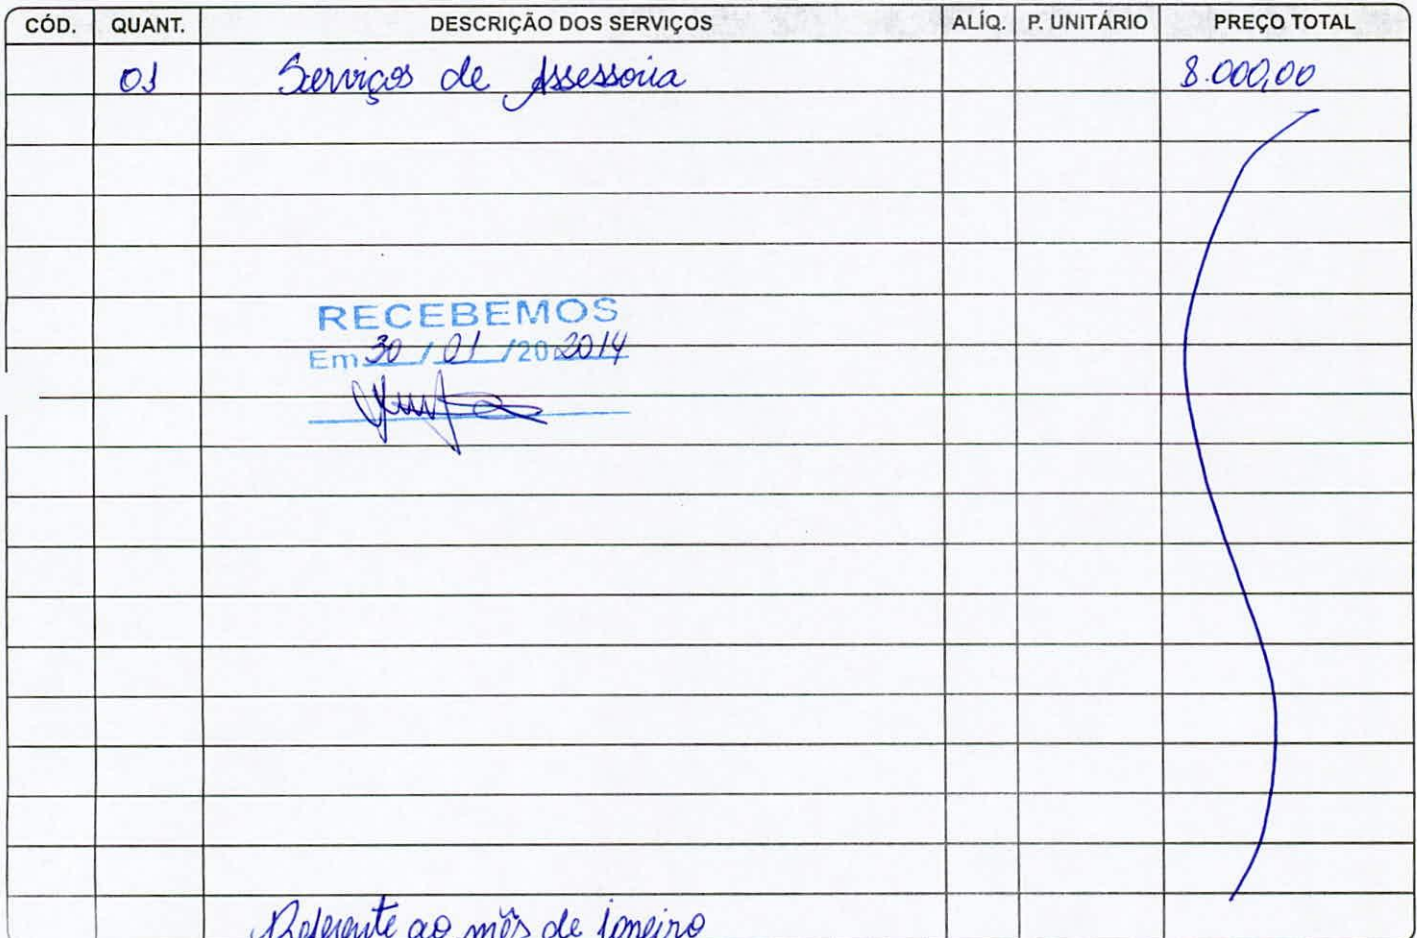 CÓD. QUANT. DESCRIÇÃO DOS SERVIÇOS ALÍQ. P. UNITÁRIO PREÇO TOTAL
01 Serviços de Assessoria 8.000,00
RECEBEMOS
Em 30 / 01 /20 2014
Referente ao mês de Janeiro